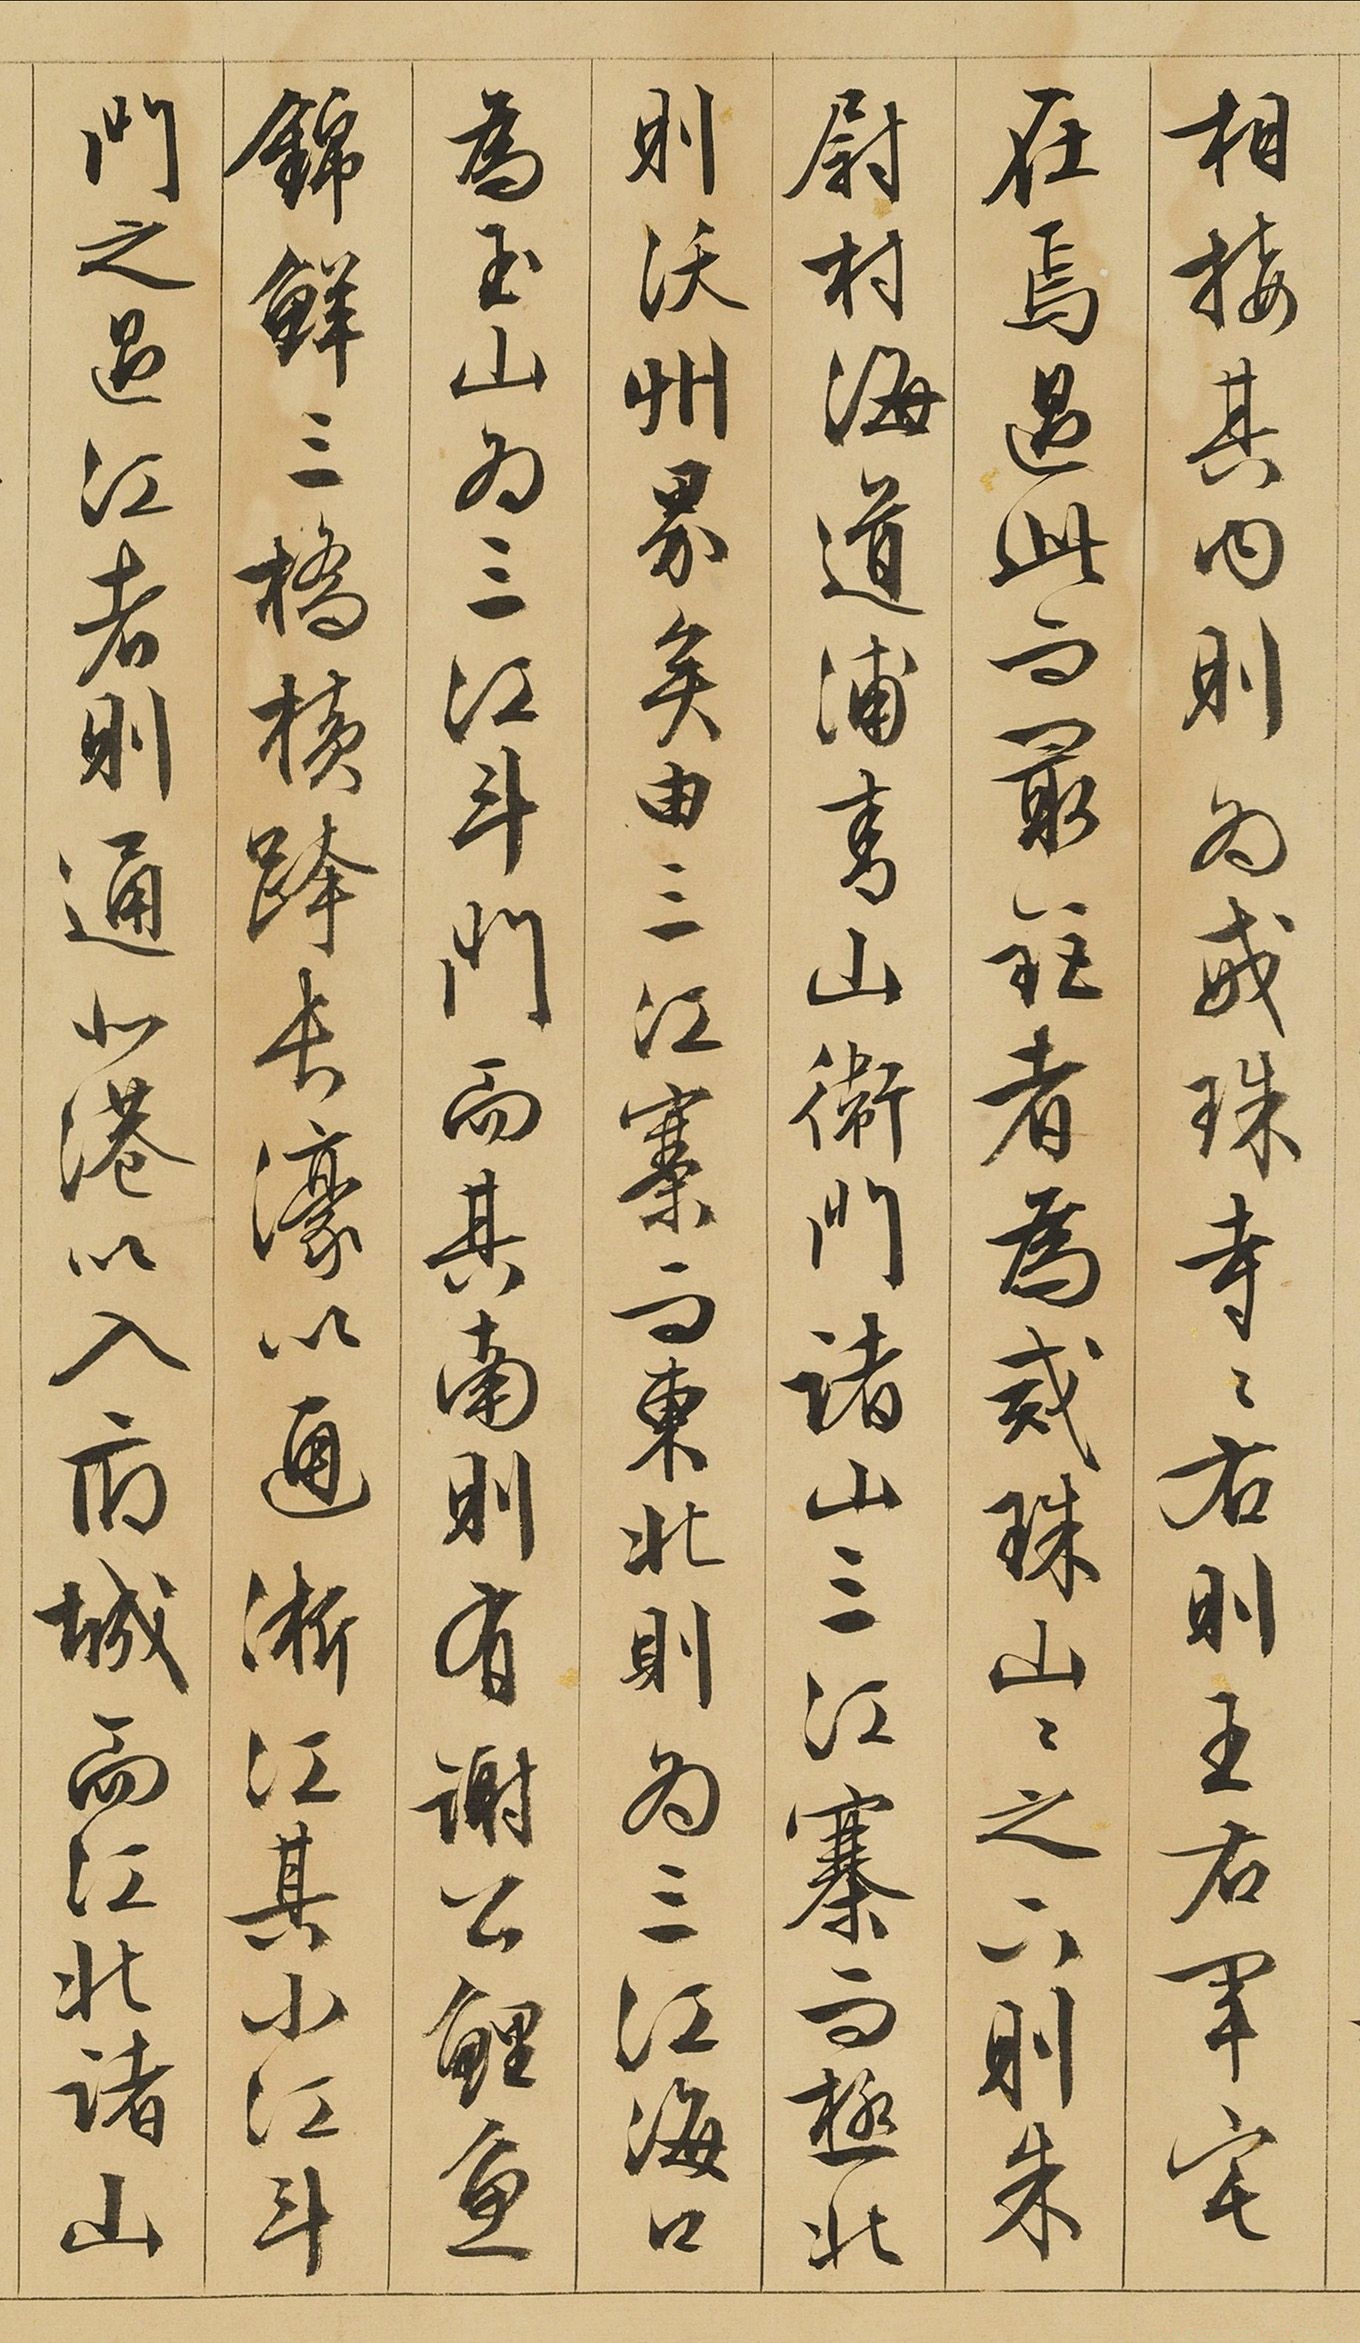 相接其内則为戒珠寺〻右則王右軍宅
在焉過此而最 者為戒珠山〻之 則朱
尉村海道浦 山衛門諸山三江寨而極北
則沃州界矣由三江寨而東北則为三江海口
為玉山为三江斗門而其南則有谢公鯉魚
錦鮮三橋横跨長濠以通淅江其小江斗
門之過江者則通小港以入府城而江北諸山